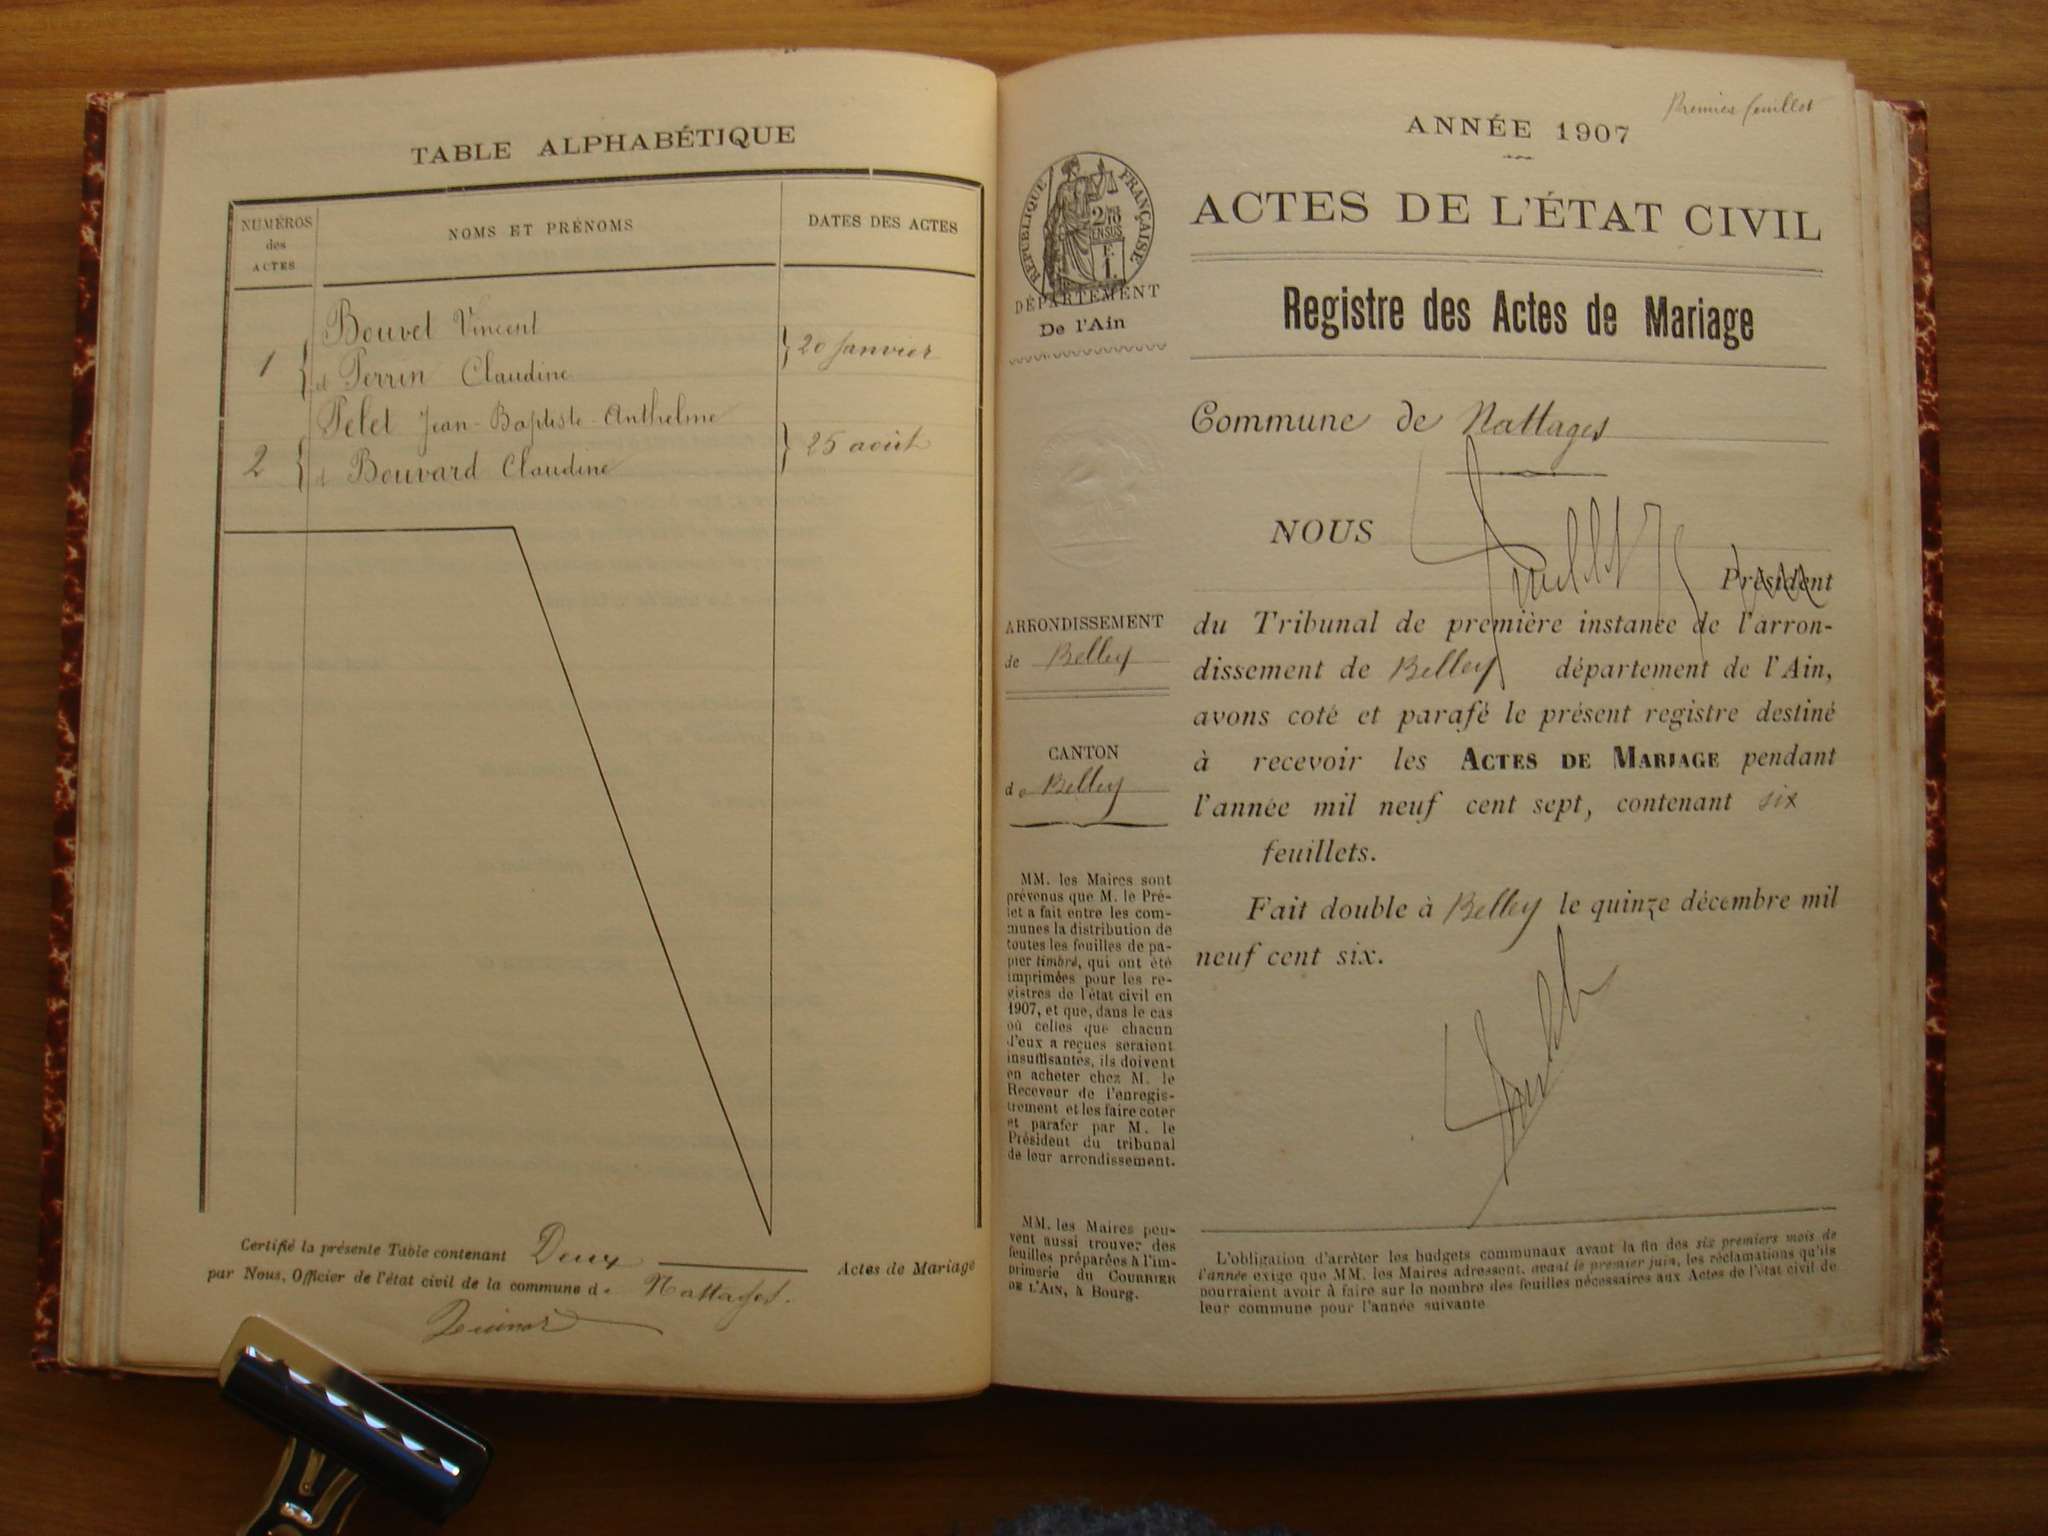 TABLE ALPHABÉTIQUE
NUMÉROS
des
ACTES
NOMS ET PRÉNOMS
DATES DES ACTES
Bouvet Vincent
1
20 Janvier
et Perrin Claudine
Pelet Jean-Baptiste-Anthelme
2
25 août
et Bouvard Claudine
Certifié la présente Table contenant Deux Actes de Mariage
par Nous, Officier de l'état civil de la commune de Nattages.
Premier feuillet
ANNÉE 1907
RÉPUBLIQUE FRANÇAISE
2/10
EN SUS
F
1.
DÉPARTEMENT
De l'Ain
ACTES DE L'ÉTAT CIVIL
Registre des Actes de Mariage
Commune de Nattages
NOUS
Président
ARRONDISSEMENT
de Belley
CANTON
de Belley
du Tribunal de première instance de l'arron-
dissement de Belley département de l'Ain,
avons coté et parafé le présent registre destiné
à recevoir les ACTES DE MARIAGE pendant
l'année mil neuf cent sept, contenant six
feuillets.
Fait double à Belley le quinze décembre mil
neuf cent six.
MM. les Maires sont
prévenus que M. le Pré-
fet a fait entre les com-
munes la distribution de
toutes les feuilles de pa-
pier timbré, qui ont été
imprimées pour les re-
gistres de l'état civil en
1907, et que, dans le cas
où celles que chacun
d'eux a reçues seraient
insuffisantes, ils doivent
en acheter chez M. le
Receveur de l'enregis-
trement et les faire coter
et parafer par M. le
Président du tribunal
de leur arrondissement.
MM. les Maires peu-
vent aussi trouver des
feuilles préparées à l'im-
primerie du COURRIER
DE L'AIN, à Bourg.
L'obligation d'arrêter les budgets communaux avant la fin des six premiers mois de
l'année exige que MM. les Maires adressent, avant le premier juin, les réclamations qu'ils
pourraient avoir à faire sur le nombre des feuilles nécessaires aux Actes de l'état civil de
leur commune pour l'année suivante